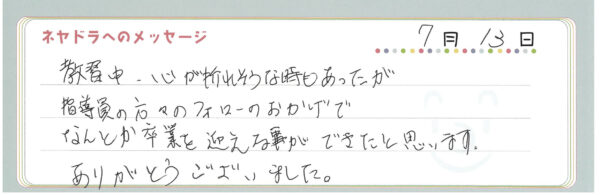 ネヤドラへのメッセージ
7月13日
教習中、心が折れそうな時もあったが
指導員の方々のフォローのおかげで
なんとか卒業を迎える事ができたと思います。
ありがとうございました。